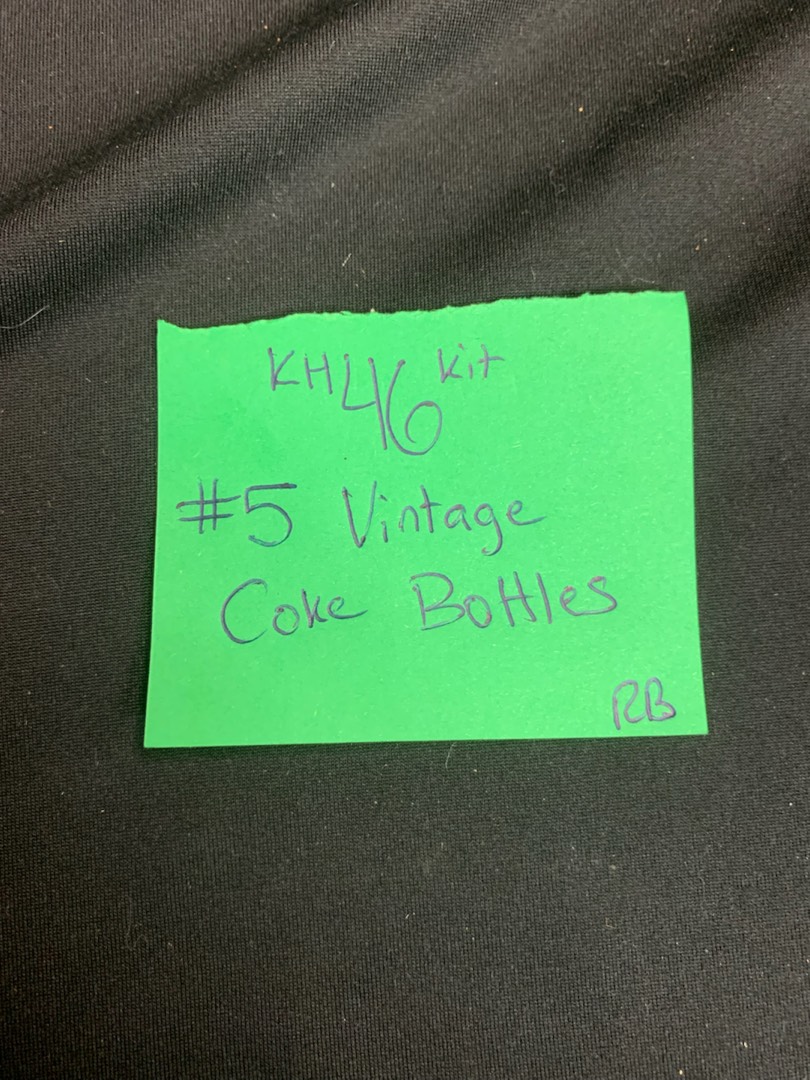 KH 46 kit
#5 Vintage
Coke Bottles
RB